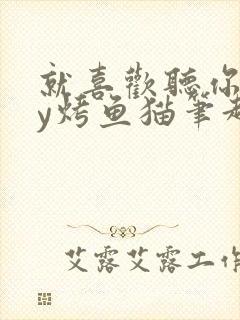 就喜歡聽你
y烤鱼猫筆趣
艾露艾露工作